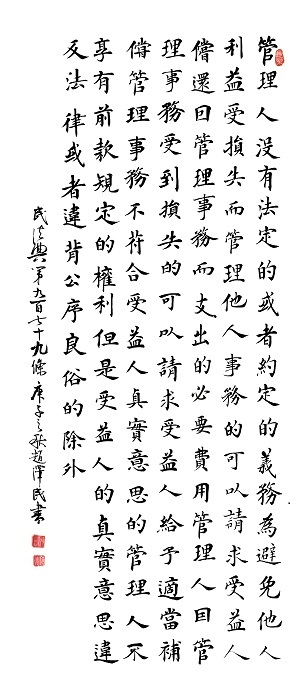 管理人没有法定的或者約定的義務為避免他人
利益受損失而管理他人事務的可以請求受益人
償還因管理事務而支出的必要費用管理人因管
理事務受到損失的可以請求受益人給予適當補
償管理事務不符合受益人真實意思的管理人不
享有前款規定的權利但是受益人的真實意思違
反法律或者違背公序良俗的除外
民法典第九百七十九條庚子之秋趙澤民書